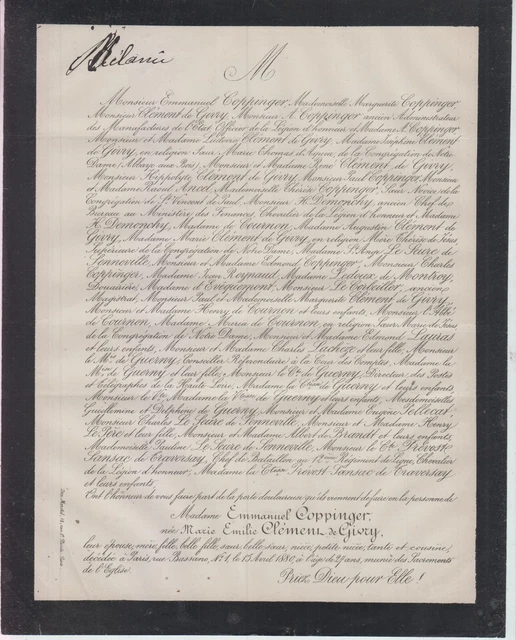 Mélanie
M
Monsieur Emmanuel Coppinger, Mademoiselle Marguerite Coppinger,
Monsieur Clément de Givry, Monsieur A. Coppinger ancien Administrateur
des Manufactures de l'Etat Officier de la Légion d'honneur et Madame A. Coppinger
Monsieur et Madame Ludovic Clément de Givry, Madame Joséphine Clément
de Givry, en religion Sœur Marie Thomas d'Aquin, de la Congrégation de Notre
Dame, (Abbaye aux Bois), Monsieur et Madame René Clément de Givry,
Monsieur Hippolyte Clément de Givry, Monsieur Paul Coppinger, Monsieur
et Madame Raoul Ancel, Mademoiselle Thérèse Coppinger, Sœur Novice de la
Congrégation de St Vincent de Paul, Monsieur H. Demonchy, ancien Chef de
Bureau au Ministère des Finances, Chevalier de la Légion d'honneur et Madame
H. Demonchy, Madame de Tournon, Madame Augustin Clément de
Givry, Madame Marie Clément de Givry, en religion Mère Thérèse de Jésus
Supérieure de la Congrégation de Notre Dame, Madame St Ange Le Faure de
Fenneville, Monsieur et Madame Edmond Coppinger, Monsieur Charles
Coppinger, Madame Jean Reynaud, Madame Ledoux de Montroy,
Douairière, Madame d'Evecquemont, Monsieur Le Corbeiller, ancien
Magistrat, Monsieur Paul et Mademoiselle Marguerite Clément de Givry,
Monsieur et Madame Henry de Tournon et leurs enfants, Monsieur l'Abbé
de Tournon, Madame Maria de Tournon, en religion Sœur Marie de Jésus
de la Congrégation de Notre Dame, Monsieur et Madame Edmond
et leurs enfants, Monsieur et Madame Charles et leur fille, Monsieur
le Mis de Guerny, Conseiller Référendaire à la Cour des Comptes, Madame la
Mise de Guerny et leur fille, Monsieur le Cte de Guerny, Directeur des Postes
et Télégraphes de la Haute Loire, Madame la Ctesse de Guerny et leurs enfants,
Monsieur le Vte Madame la Vtesse de Guerny et leurs enfants, Mesdemoiselles
Guillemine et Delphine de Guerny, Monsieur et Madame Eugène Pellecat,
Monsieur Charles Le Faure de Fenneville, Monsieur et Madame Henry
Le Père et leur fille, Monsieur et Madame Albert de Brandt et leurs enfants,
Mademoiselle Pauline Le Faure de Fenneville, Monsieur le Cte Prévost
Sansac de Traversay, Chef de Bataillon au Régiment de Ligne, Chevalier
de la Légion d'honneur, Madame la Ctesse Prévost Sansac de Traversay
et leurs enfants,
Ont l'honneur de vous faire part de la perte douloureuse qu'ils viennent de faire en la personne de
Madame Emmanuel Coppinger,
née Marie Emilie Clément de Givry,
leur épouse, mère, fille, belle fille, sœur, belle-sœur, nièce, petite nièce, tante et cousine,
décédée à Paris, rue Bassano, No 1, le 13 Avril 1880, à l'âge de 27 ans, munie des Sacrements
de l'Eglise.
Priez Dieu pour Elle !